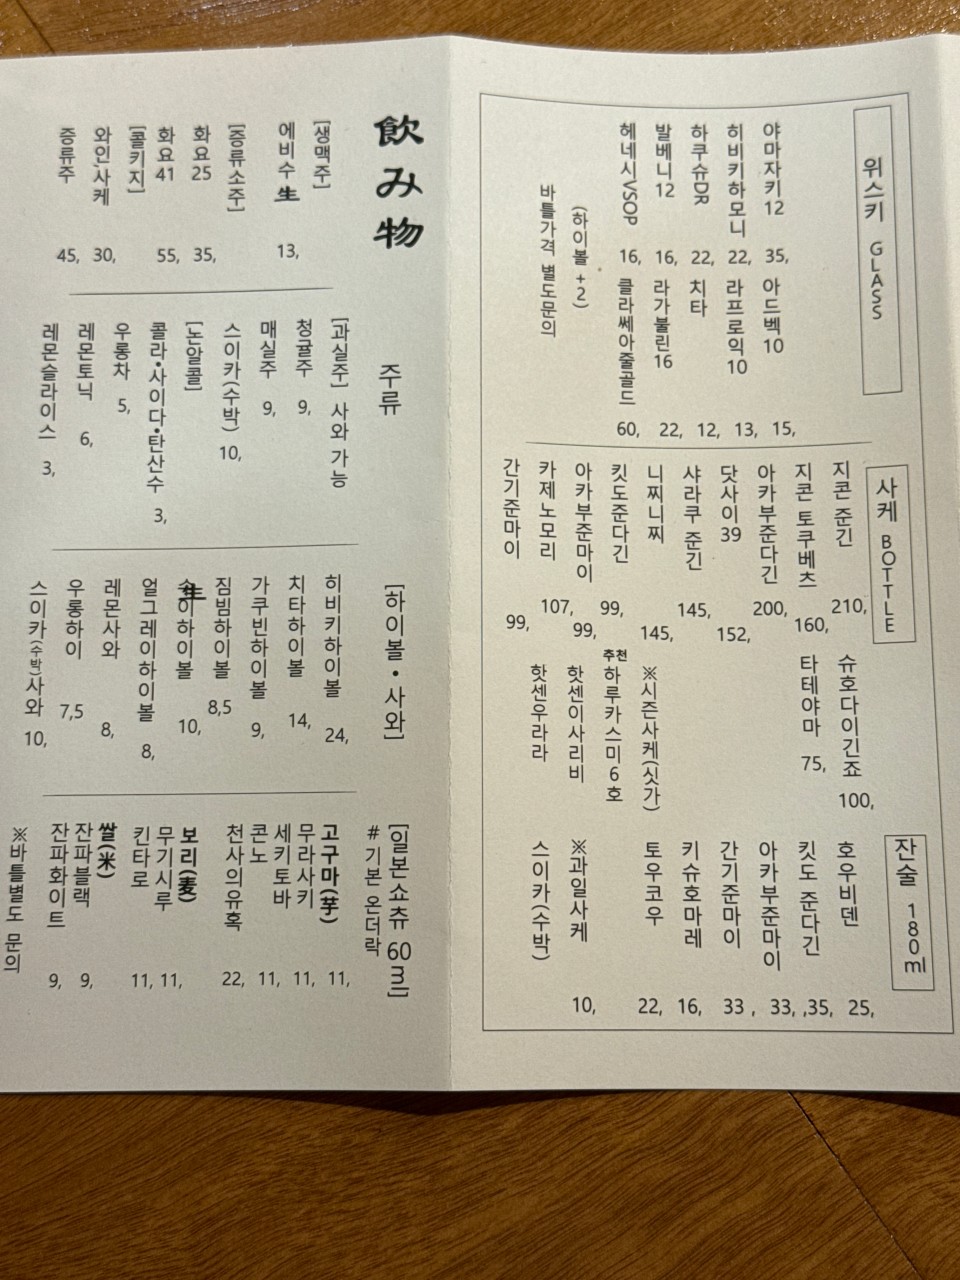 위스키 GLASS
야마자키 12 35,
히비키하모니 22,
하쿠슈DR 22,
발베니 12 16,
헤네시VSOP 16,
(하이볼 +2)
바틀가격 별도문의
아드벡 10 15,
라프로익 10 13,
치타 12,
라가불린 16 22,
클라쎄아줄골드 60,
사케 BOTTLE
지콘 준긴 210,
지콘 토쿠베츠 160,
아카부준다긴 200,
닷사이 39 152,
샤라쿠 준긴 145,
니찌니찌 145,
킷도준다긴 99,
아카부준마이 99,
카제 노모리 107,
간기준마이 99,
슈호다이긴죠 100,
타테야마 75,
※시즌사케(싯가)
추천 하루카스미 6호
핫센이사리비
핫센우라라
잔술 180ml
호우비덴 25,
킷도 준다긴 ,35,
아카부준마이 33,
간기준마이 33 ,
키슈호마레 16,
토우코우 22,
※과일사케 10,
스이카(수박)
飲み物
주류
[생맥주]
에비수 生 13,
[증류소주]
화요25 35,
화요41 55,
[콜키지]
와인,사케 30,
증류주 45,
[과실주] 사와 가능
청귤주 9,
매실주 9,
스이카(수박) 10,
[논알콜]
콜라•사이다•탄산수 3,
우롱차 5,
레몬토닉 6,
레몬슬라이스 3,
[하이볼 • 사와]
히비키하이볼 24,
치타하이볼 14,
가쿠빈하이볼 9,
짐빔하이볼 8,5
生이하이볼 10,
얼그레이하이볼 8,
레몬사와 8,
우롱하이 7,5
스이카(수박)사와 10,
[일본쇼츄 60ml]
#기본 온더락
고구마(芋)
무라사키 11,
세키토바 11,
콘노 11,
천사의유혹 22,
보리(麦)
무기시루 11,
킨타로 11,
쌀(米)
잔파블랙 9,
잔파화이트 9,
※바틀별도 문의